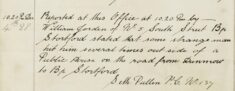 10.20 P.M. Reported at this Office at 10.20 P.M by
4th 28 William Gorden of No 5 South Street Bp
Stortford stated that some strange man
hit him several times out side of a
Public House on the road from Dunmow
to Bp Stortford.
Seth Pullen P.C. No 137